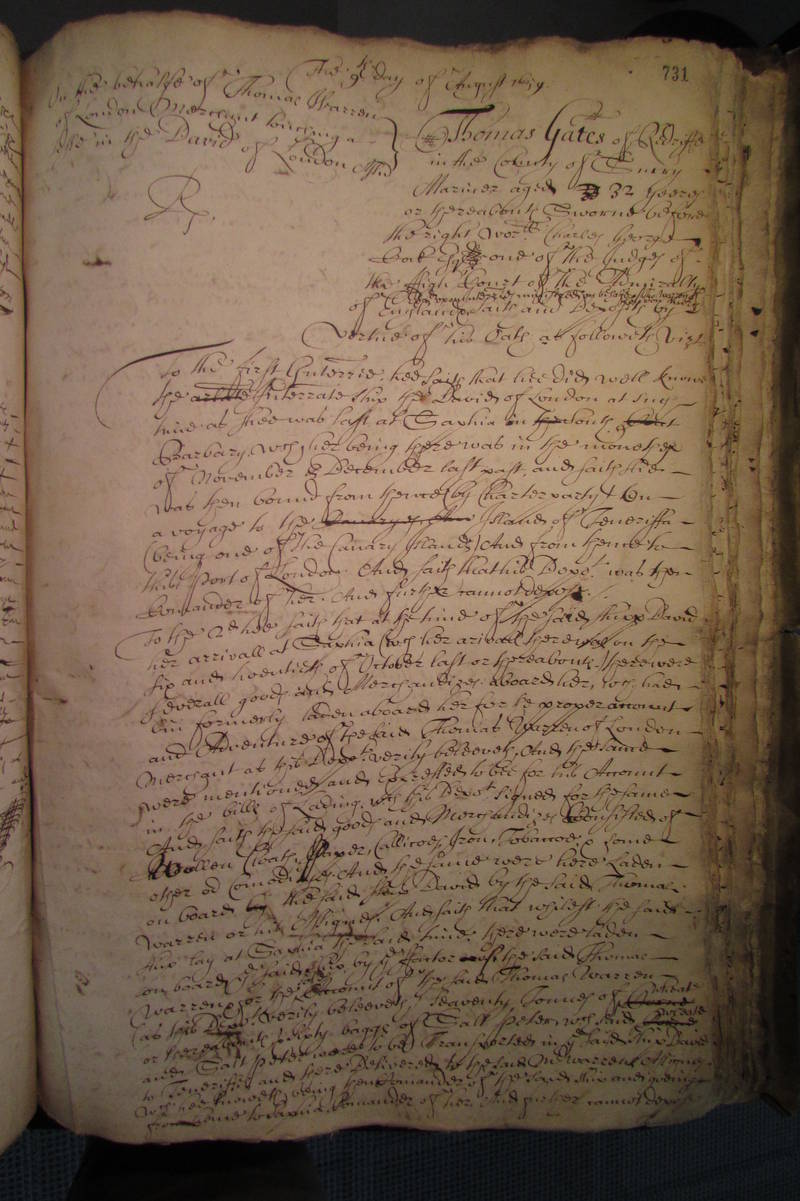 The 4th day of August 1659
731
On the behalfe of Thomas Warren
of London Merchant touching a
losse in the David of London
Thomas Gates of Redriffe
in the County of Surry
Mariner aged 32 yeeres
or thereabouts Sworne before
the right worll Charles George
Cock Esqr one of the Judges of
the High Court of the Admiralty
of England saith and deposeth by
vertue of his Oath as followeth Vizt
To the first Interrie. hee saith that hee did well knowe
the Interrate ship the David of London at such
time as shee was last at Saphia in South
Barbary, wch her being there was in the moneths
of November & December last past, and saith shee
was then bound from thence by Charterparty
a voyage to the Island of Teneriffa
(being one of the Canary Islands) And from thence to
this Port of London. And saith that his Depot. was then
Comander of her. And further cannot depose.
To the 2d hee saith that at the time of the said shipp David
her arrivall at Saphia (wch her arivall there was on the
six and twentieth of October last or thereabouts) there were
severall goods and Merchandizes aboard her, wch had
bin formerly laden aboard her for the proper account
and Adventure of the said Thomas Warren of London
Merchant as this Depot. verily beleeveth, And the same
were mentioned and expressed to bee for his Account
in the bills of Lading, wch this Depot. signed for the same
And saith the said goods and Merchandizes Consisted of
Wollen Cloath, Paper, Callicoes, Iron, Tobaccoe & some
other Comodities. And the same were here laden
on board the said shipp David by the said Thomas
Warren or his Assignes. And saith that whilest the said
ship lay at Saphia the said time, there were laden
on board the said ship, by the Factor of the said Thomas
Warren & for the Account of the said Thomas Warren
(as this Depot. verily beleeveth) Seaventy Tonnes of
or thereabouts, & sixty baggs of Salt peter, wch said
and Salt peter were to be Transported in the said ship David
to Teneriffa and there Delivered to the said Mr Warrens Assignes
wch hee knoweth being then Comander of the said ship and goeing
from home to Saphia Comander of her. And further cannot depose